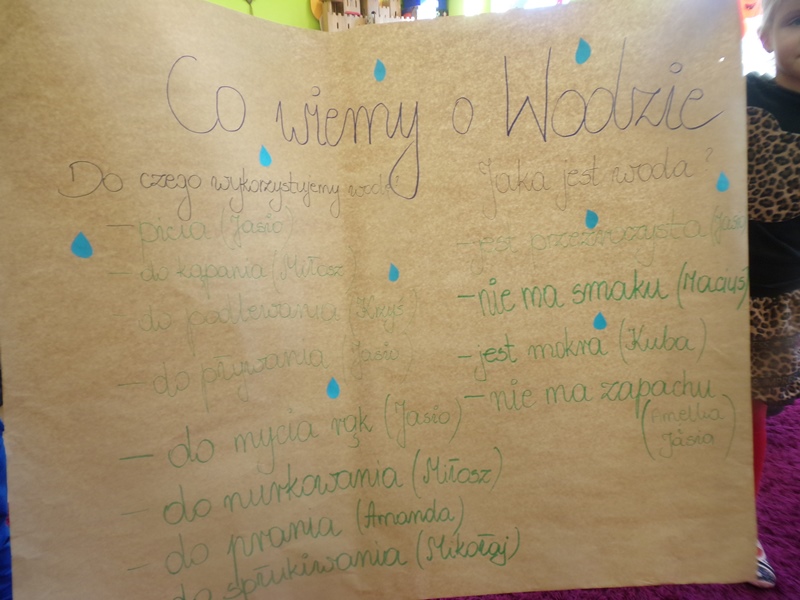 Co wiemy o Wodzie
Do czego wykorzystujemy wodę?
- picia (Jasio)
- do kąpania (Miłosz
do podlewania (Krzyś)
- do pływania (Jasio)
- do mycia rąk (Jasio)
- do nurkowania (Miłosz)
- do prania (Amanda)
do spłukiwania (Mikołaj)
Jaka jest woda?
- jest przezroczysta (Jasio
- nie ma smaku (Maciuś)
- jest mokra (Kuba)
- nie ma zapachu
(Amelka
Jasia)